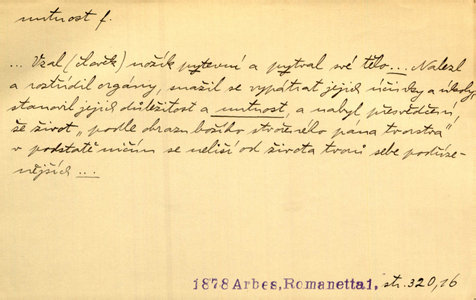 nutnost f.
... Vzal (člověk) nožík pytevní a pytval své tělo ... Nalezl
a roztřídil orgány, snažil se vypátrat jejich účinky a úkoly,
stanovil jejich důležitost a nutnost, a nabyl přesvědčení,
že život "podle obrazu božího stvořeného pána tvorstva"
v podstatě ničím se neliší od života tvorů sebe podříze-
nějších ...
1878 Arbes, Romanetta 1, str. 320, 16